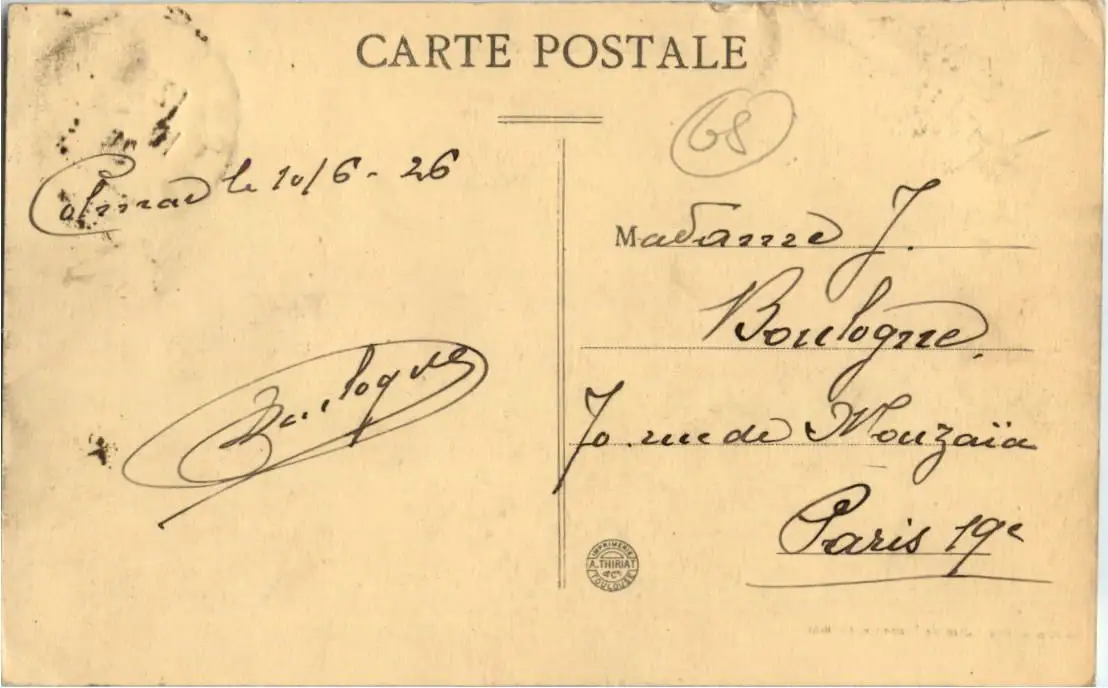 CARTE POSTALE
68
Colmar le 10/6 - 26
Madame J.
Boulogne
70 rue de Mouzaïa
Paris 19e
Boulogne
IMPRIMERIE
A. THIRIAT
& Cie
TOULOUSE